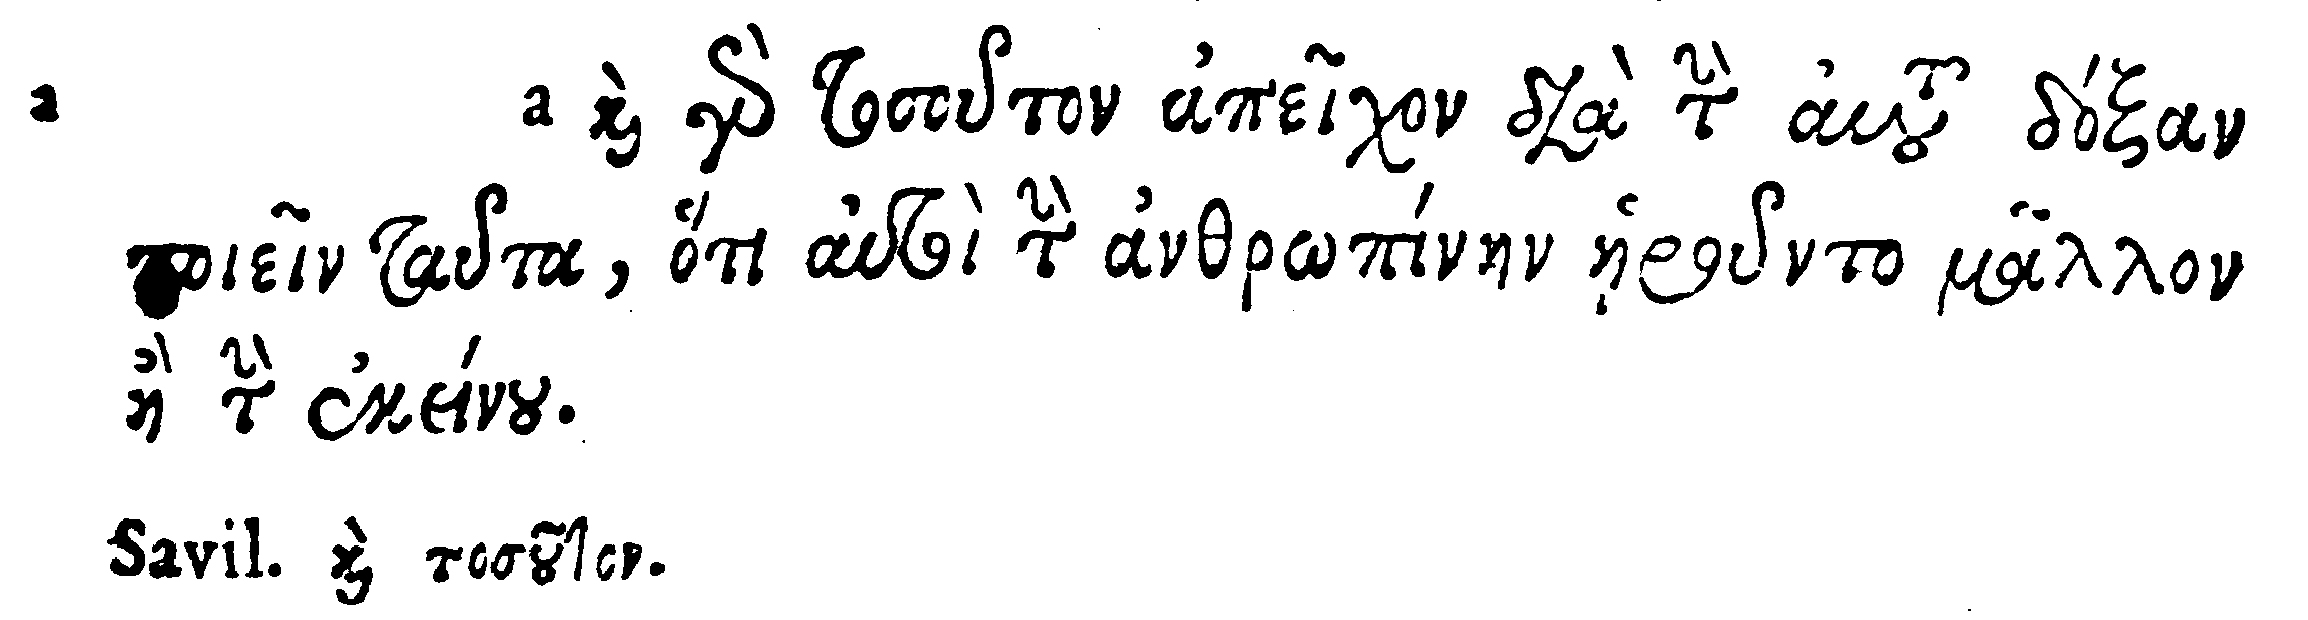 a a καὶ γὰρ τοσοῦτον ἀπεῖχον διὰ τὴν αὐτοῦ δόξαν
ποιεῖν ταῦτα, ὅτι αὐτοὶ τὴν ἀνθρωπίνην ᾑροῦντο μᾶλλον
ἢ τὴν ἐκείνου.
Savil. καὶ τοσοῦτον.